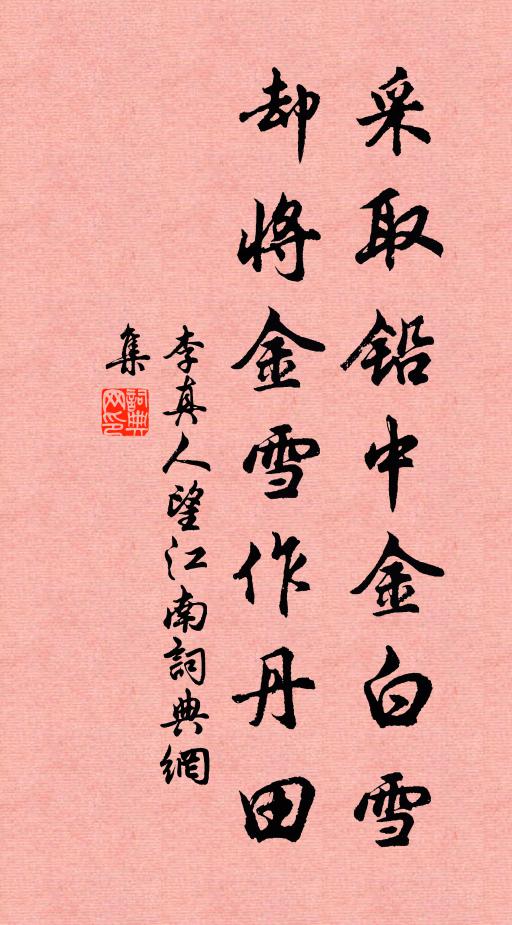 采取鉛中金白雪
却將金雪作丹田
李真人望江南詞典網
集
詞典
网印